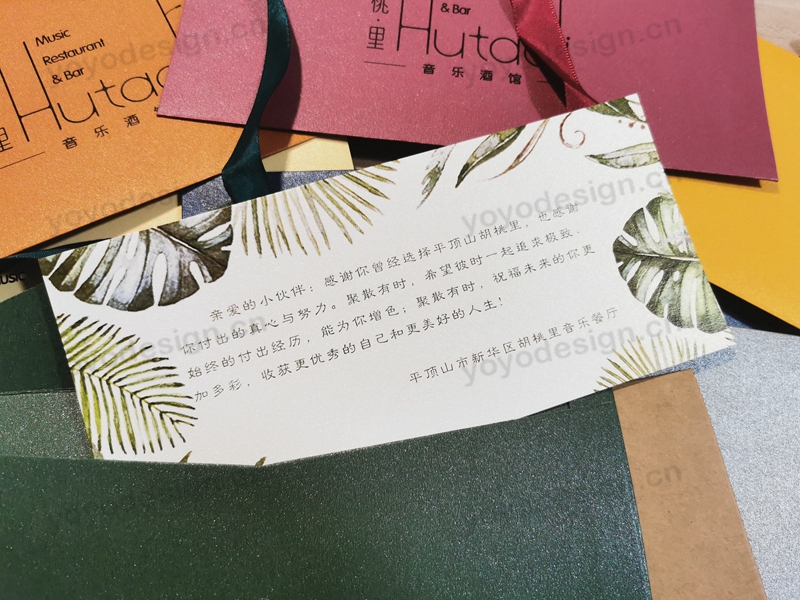 Music
Restaurant
& Bar
Hutao
里
音乐酒
& Bar
桃·里
Hutaoli
音乐酒馆
Music
亲爱的小伙伴：感谢你曾经选择平顶山胡桃里，也感谢
你付出的真心与努力。聚散有时，希望彼时一起追求极致、
始终的付出经历，能为你增色；聚散有时，祝福未来的你更
加多彩，收获更优秀的自己和更美好的人生！
平顶山市新华区胡桃里音乐餐厅
yoyodesign.cn
yoyodesign.cn
yoyodesign.cn
yoyodesign.cn
yoyodesign.cn
yoyodesign.cn
yoyodesign.cn
yoyodesign.cn